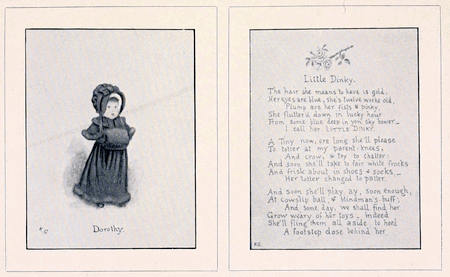 K G
Dorothy.
Little Dinky.
The hair she means to have is gold,
Her eyes are blue, she's twelve weeks old,
Plump are her fists & pinky.
She fluttered down in lucky hour
From some blue deep in yon sky bower—
I call her LITTLE DINKY.
A Tiny now, ere long she'll please
To totter at my parent-knees,
And crow, & try to chatter:
And soon she'll take to fair white frocks
And frisk about in shoes & socks,—
Her totter changed to patter.
And soon she'll play, ay, soon enough,
At cowslip ball & blindman's-buff;
And some day, we shall find her
Grow weary of her toys— indeed
She'll fling them all aside to heed
A footstep close behind her.
K.G.